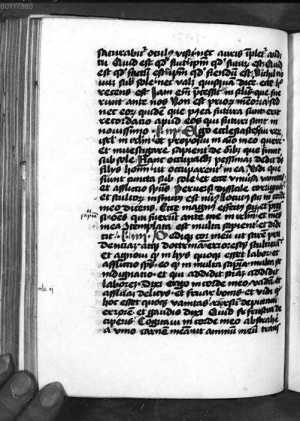 saturabit' oculus visu nec auris iplet' audi
tu Quid est qd' fuit ipm qd' futur' est Quid
est qd' factu est ipm qd' fiendu est Nichil no
uu sub sole nec valet quisqua dicere ecce h'
recens est Iam em pcessit in sclis que fue
runt ante nos Non est prior' memoria sed
nec eor' quide que postea futura sunt erit
recordatio apud eos qui futuri sunt in
nouissimo Ego ecclesiastes fui rex
isrl in irlm et proposui in aio meo querere
et inuestigare sapient de oib' que fiunt
sub sole Hanc occupatione pessima dedit ds
filijs hoim ut occuparent' in ea Vidi que
fiunt cuncta sub sole et ecce vniusa vanitas
et afflictio spus Peruersi difficile corrigunt'
et stultor' infinitus est nus Locutus su in corde
meo dicens Ecce magn' effectus su et pcessi
oes qui fuerut ante me in irlm et mes
mea 9templata est multa sapient et didi
ci Dediq cor meu ut scire pru
dentia atq doctrina erroresq et stulticia
et agnoui q in hijs quoq esset labor et
afflictio spus eo q in multa sapia multa sit
indignatio et qui addidit scia addidit
labore Dixi ergo in corde meo vada et
affluam delicijs et fruar bonis et vidi q
hoc esset quoq vanitas Risu reputaui
errore et gaudio dixi Quid frustra de
ciperis Cogitaui in corde meo abstrahe
a vino carne mea ut animu meu trans